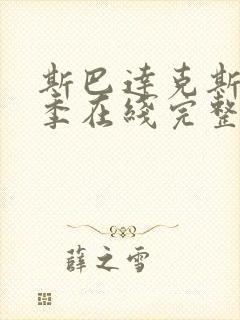 斯巴達克斯
季在綫完整
薛之雪